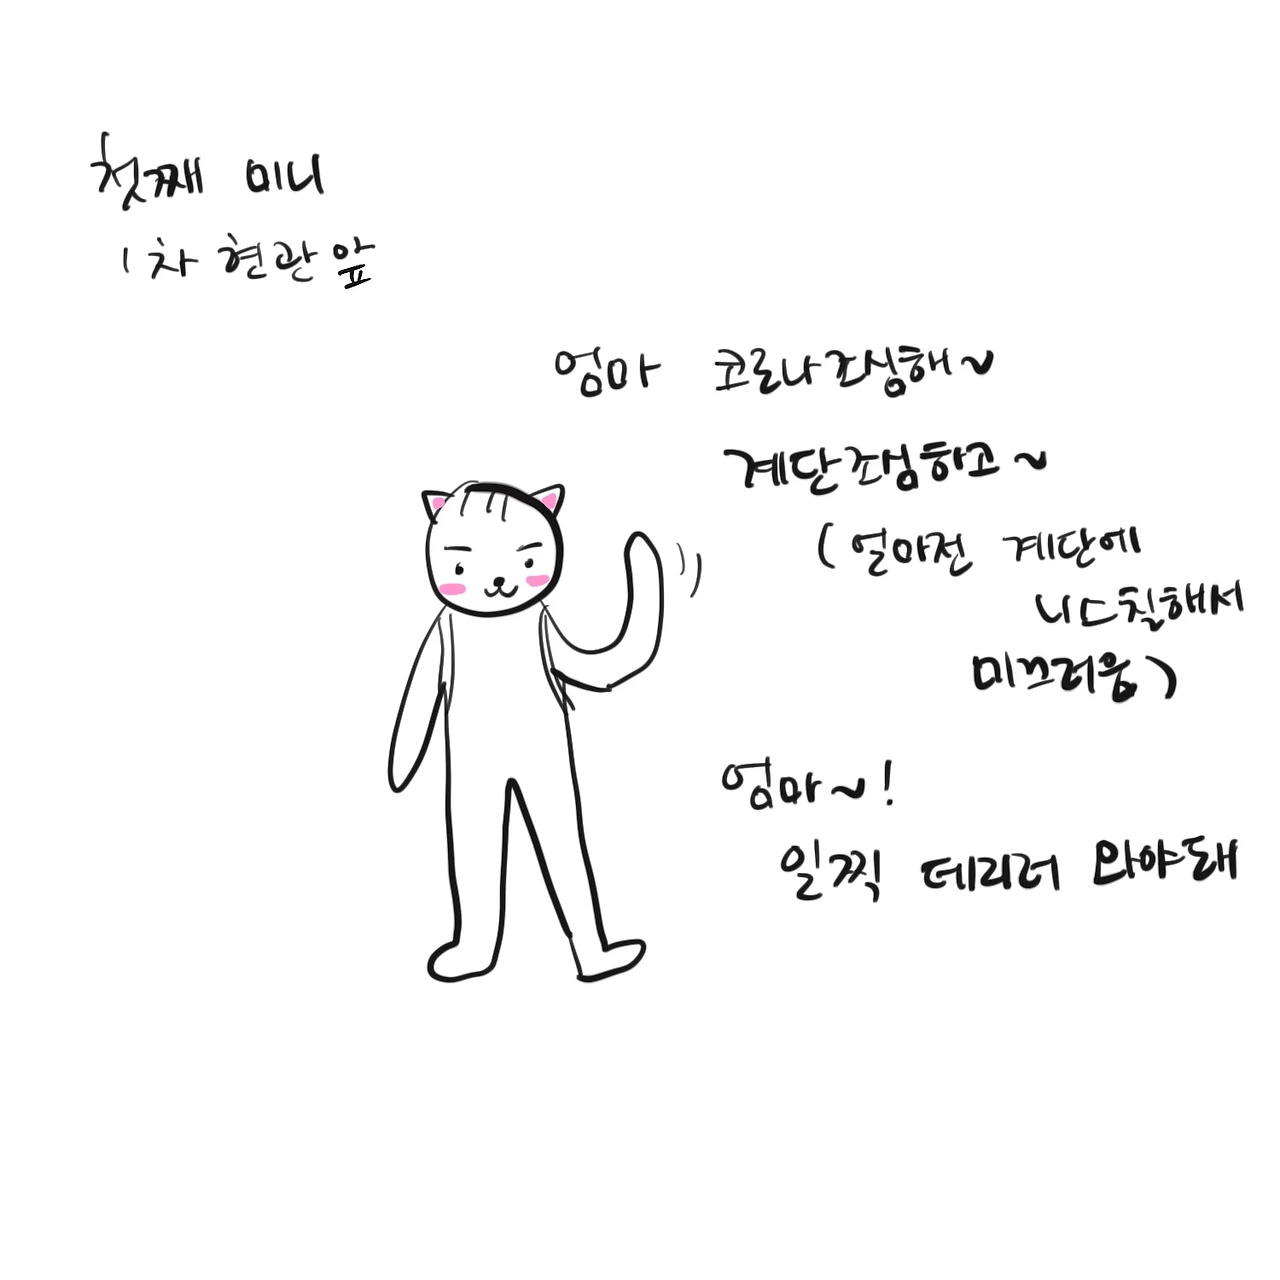 첫째 미니
1차 현관 앞
엄마 코로나조심해~
계단조심하고~
(얼마전 계단에
니스칠해서
미끄러움)
엄마~!
일찍 데리러 와야돼